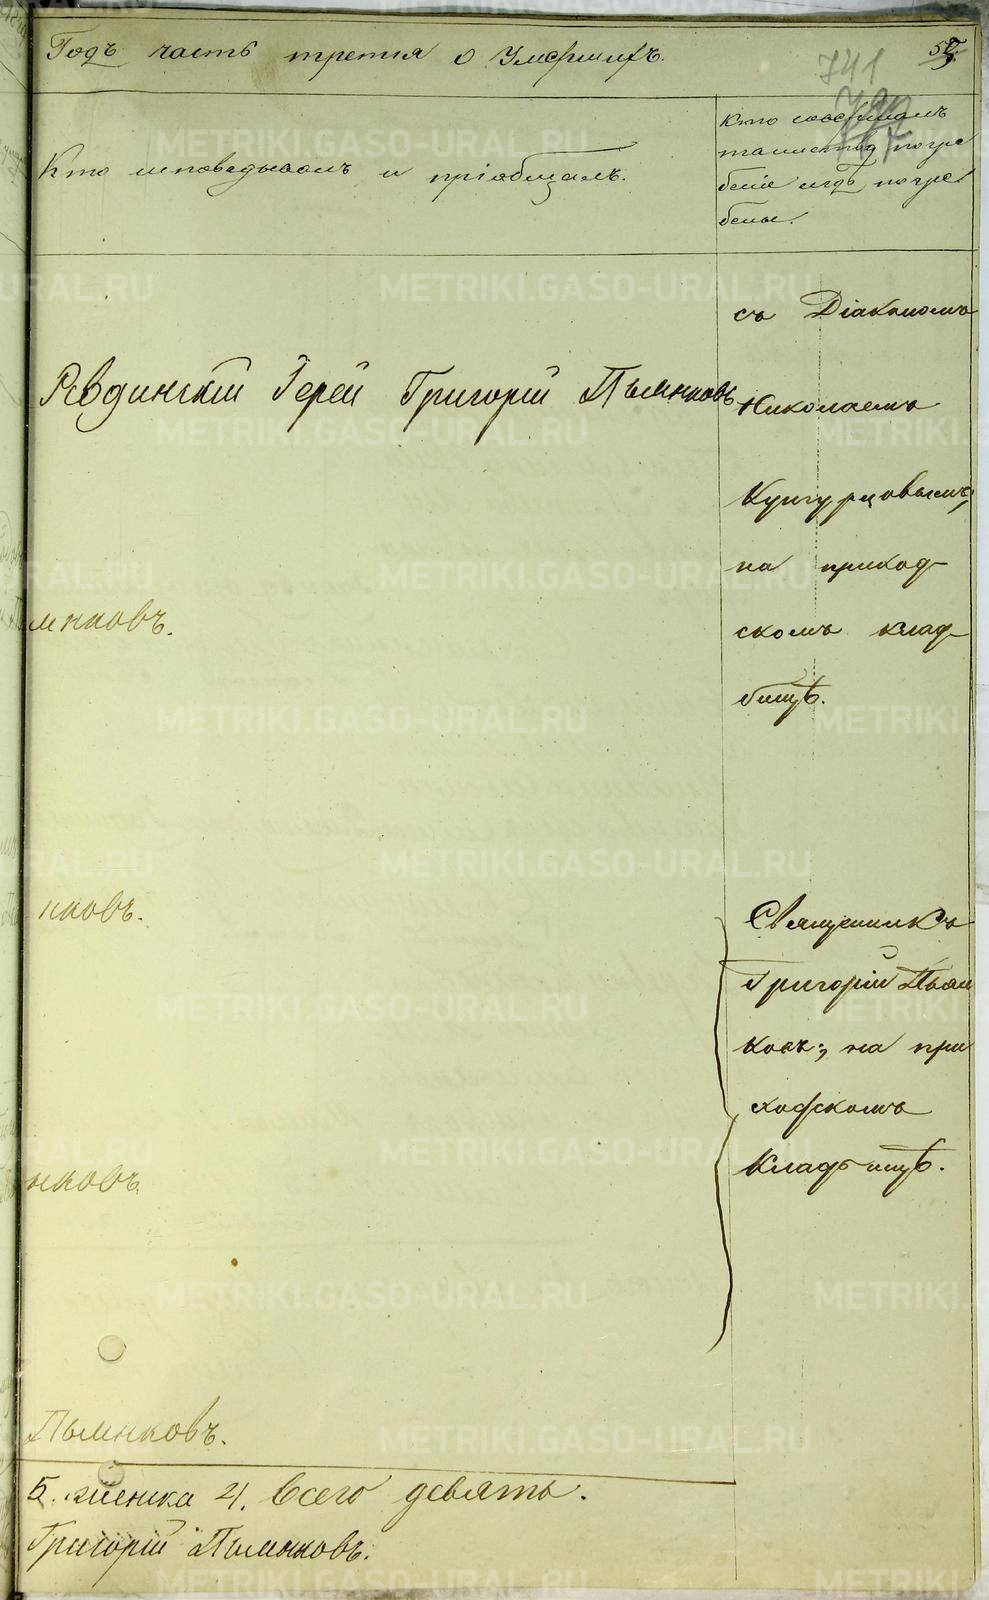 Годъ часть третія о Умершихъ.
741
Кто исповедывалъ и пріобщалъ.
Кто совершалъ
таинство погре
бенія и гдѣ погре
бены.
съ Діакономъ
Ревдинскій Іерей Григорій Пьянковъ
Николаемъ
Кунгурцовымъ,
на приход-
скомъ клад-
бищѣ.
янковъ.
нковъ.
Священникъ
Григорій Пьян
ковъ; на при
ходскомъ
кладбищѣ.
нковъ.
Пьянковъ.
5. женска 4. Всего девять.
Григорій Пьянковъ.
METRIKI.GASO-URAL.RU